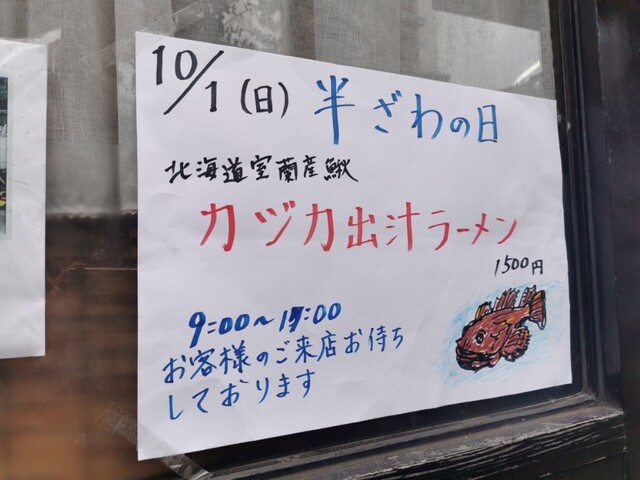 10/1(日) 半ざわの日
北海道室蘭産鰍
カヅカ出汁ラーメン
1500円
9:00〜17:00
お客様のご来店お待ち
しております